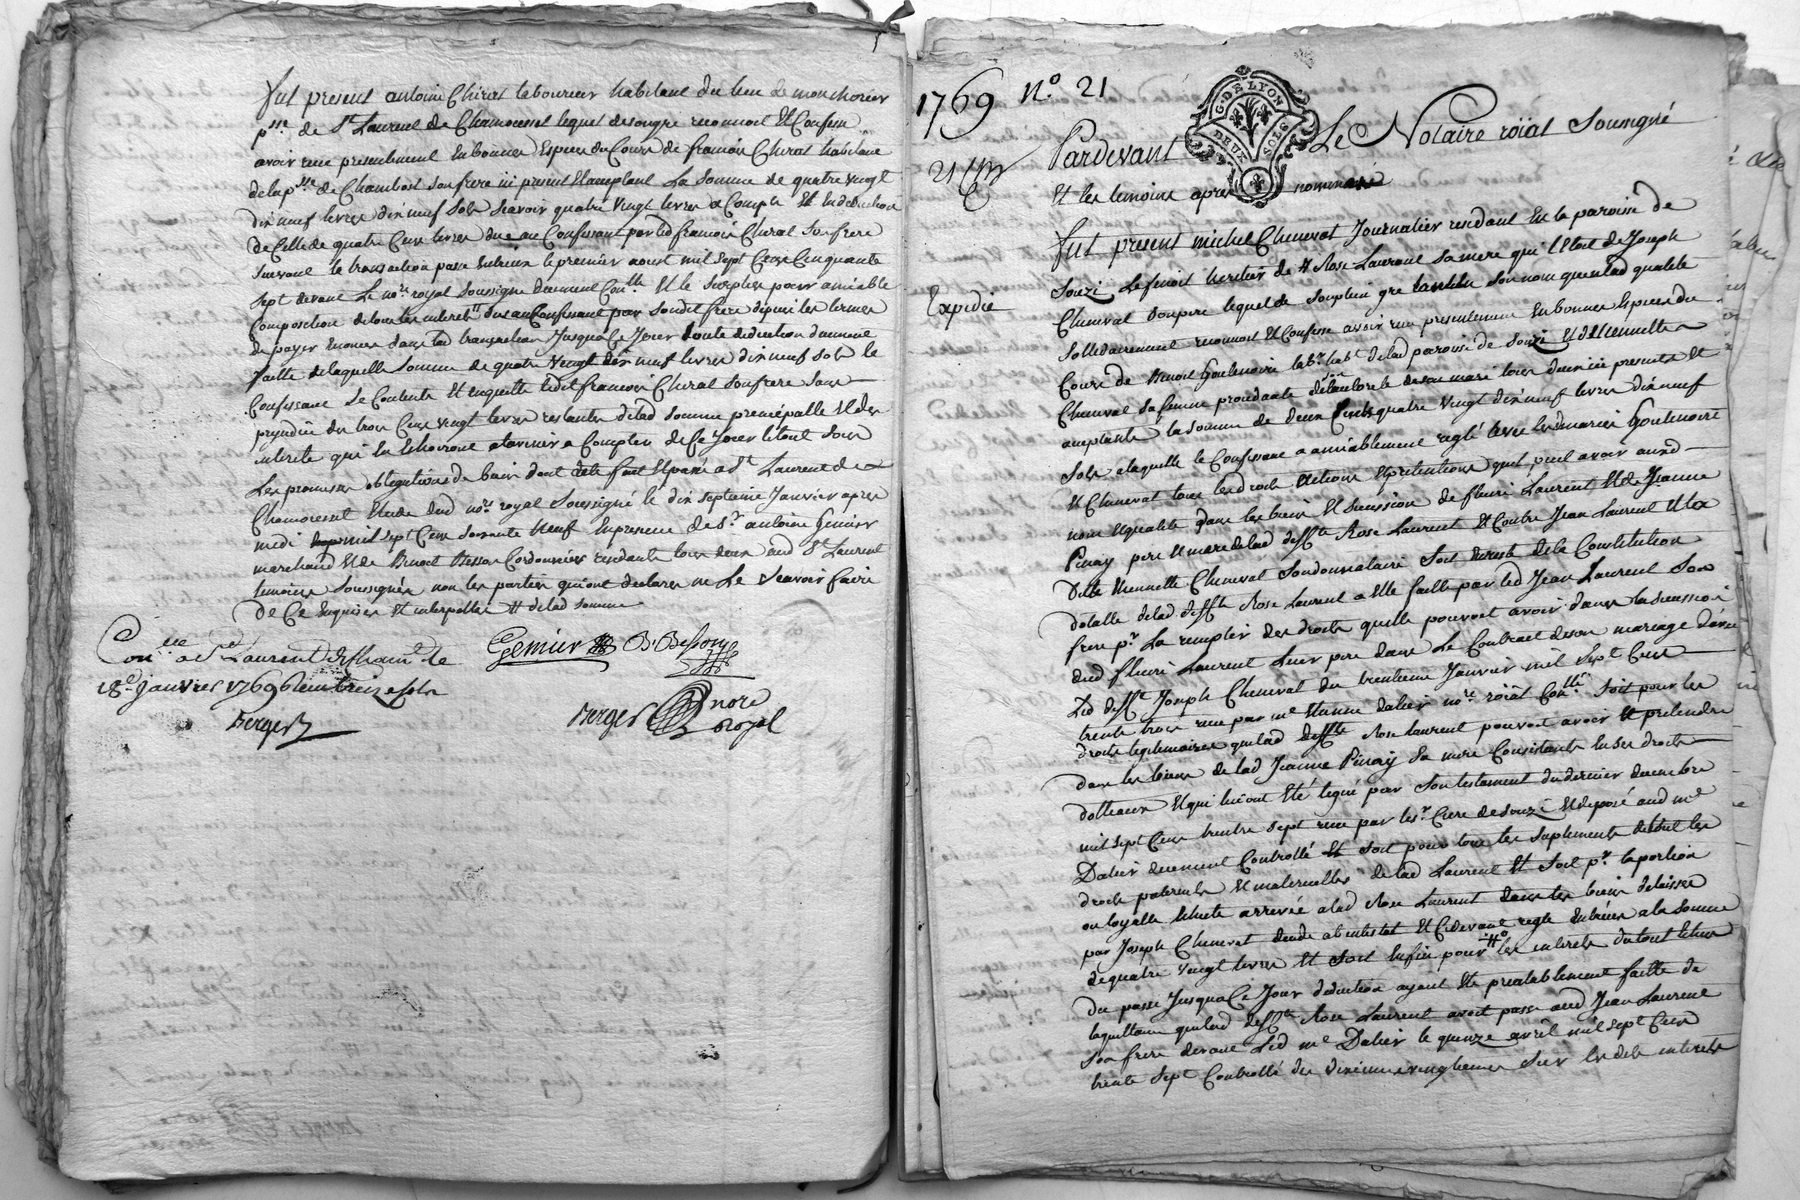 fut present antoine Chirat laboureur habitant du lieu de monchorier
p.sse de St Laurent de Chamousset lequel de son gre reconnoit Et Confesse
avoir recu presentement En bonnes Especes du Cours de francois Chirat habitant
de la p.sse de Chambost son frere ici present Et acceptant La Somme de quatre vingt
dix neuf livres dix neuf sols Scavoir quatre vingt livres a Compte Et En deduction
de Celle de quatre Cens livres due au Confessant par led francois Chirat son frere
suivant la transaction passe Entreux le premier aout mil sept Cens Cinquante
sept devant Le no.re royal soussigne duement Con.lle Et le surplus pour amiable
Composition de tous les interets dus au Confessant par sondit frere depuis les termes
de payer Enonces dans lad transaction Jusqua Ce Jour toute deduction duement
faitte de laquelle somme de quatre vingt dix neuf livres dix neuf sols le
Confessant Se Contente Et En quitte ledit francois Chirat son frere sans
prejudice des trois Cens vingt livres restantes de lad somme principalle Et des
interets qui En Echoiront a larvenir a Compter de Ce Jour le tout sous
Les promesses obligations de biens dont acte fait Et passé a St Laurent de
Chamousset Etude dud no.re royal Soussigné le dix septieme Janvier apres
midi mil sept Cens soixante Neuf En presence de S.r antoine Gemier
marchand Et de Benoit Besson Cordonnier residants tous deux aud St Laurent
temoins Soussignés non les parties qui ont declarés ne Le Scavoir faire
de Ce Enquises Et interpellées # de lad somme
Gemier B. Besson
Con.lle a St Laurent de Cham.t le
18e Janvier 1769 Recu treize sols
Berger
Berger nore
royal
1769 N.o 21
21
Expedié
G. DE LYON
DEUX SOLS
Pardevant Le Notaire roïal Soussigné
Et les temoins apres nommés
fut present michel Cheneval Journalier residant En la paroisse de
Souzi Lequel heritier de # Rose Laurent sa mere qui l'Etoit de Joseph
Cheneval son pere lequel de son plein gre tant En son nom quen lad qualité
Sollidairement reconnoit Et Confesse avoir recu presentement En bonnes Especes du
Cours de Benoit Goutenoire lab.r hab.t de lad paroisse de Souzi Et d'Etiennette
Cheneval sa femme procedante de l'autorité de son mari tous deux ici presents Et
acceptants la somme de deux Cents quatre vingt dix neuf livres dix neuf
sols a laquelle le Confessant a amiablement reglé avec lesd mariés Goutenoire
Et Cheneval tous les droits actions Et pretentions quil peut avoir aud
nom Et qualité dans les biens Et Succession de fleuri Laurent Et de Jeanne
Pinay pere Et mere de lad deff.te Rose Laurent Et Contre Jean Laurent Et la
ditte Etiennette Cheneval son donnataire Soit En reste de la Constitution
dotalle de lad deff.te Rose Laurent a Elle faitte par led Jean Laurent Son
frere p.r La remplir des droits quelle pouvoit avoir dans la succession
dud fleuri Laurent Leur pere dans Le Contract de son mariage avec
Led deff.t Joseph Cheneval du trentieme Janvier mil Sept Cens
trente trois recu par m.e Etienne Dalier no.re roïal Con.lle Soit pour les
droits legitimaires que lad deff.te Rose Laurent pouvoit avoir Et pretendre
dans les biens de lad Jeanne Pinay Sa mere Consistants En Ses droits
dotteaux Et qui lui ont Eté legué par son testament du dernier decembre
mil sept Cens trente sept recu par le s.r Curé de Souzi Et deposé aud m.e
Dalier duement Controllé Et Soit pour tous les suplements de tout les
droits paternels Et maternelles de lad Laurent Et Soit p.r la portion
ou loyalle Echute arrivée a lad Rose Laurent dans les biens delaissés
par Joseph Cheneval decedé ab intestat Et Cidevant reglé Entreux a la Somme
de quatre vingt livres Et Soit Enfin pour # les interets du tout Echus
du passe Jusqua Ce Jour deduction ayant Eté prealablement faitte de
la quittance que lad deff.te Rose Laurent avoit passe aud Jean Laurent
son frere devant Led m.e Dalier le quinze avril mil sept Cens
trente Sept Controllé Des dixiemes vingtiemes Sur les dits interets